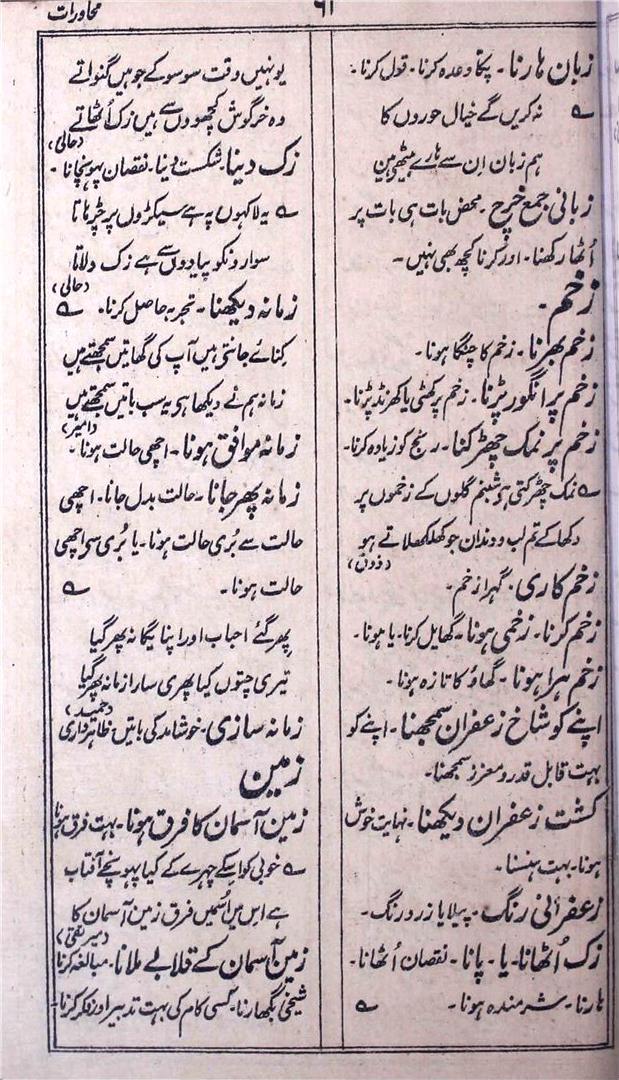 محاورات
۹۱
زبان ہارنا۔ پکا وعدہ کرنا۔ قول کرنا۔
؎ نہ کریں گے خیال حوروں کا
ہم زبان اِن سے ہارے بیٹھے ہین
زبانی جمع خرچ۔ محض بات ہی بات پر
اُٹھا رکھنا۔ اور کرنا کچھ بھی نہیں۔
زخم۔
زخم بھرنا۔ زخم کا چنگا ہونا۔
زخم پر انگور پڑنا۔ زخم پر کھٹی یا کھرنڈ پڑنا۔
زخم پر نمک چھڑکنا۔ رنج کو زیادہ کرنا۔
؎ نمک چھڑکتی ہو شبنم گلوں کے زخموں پر
دکھا کے تم لب و دندان جو کھلکھلاتے ہو
(ذوق)
زخم کاری۔ گہرا زخم۔
زخم کرنا۔ زخمی ہونا۔ گھایل کرنا۔ یا ہونا۔
زخم ہرا ہونا۔ گھاؤ کا تازہ ہونا۔
اپنے کو شاخ زعفران سمجھنا۔ اپنے کو
بہت قابل قدر و معزز سمجھنا۔
کشت زعفران دیکھنا۔ نہایت خوش
ہونا۔ بہت ہنسنا۔
زعفرانی رنگ۔ پیلا یا زرد رنگ۔
زک اُٹھانا۔ یا۔ پانا۔ نقصان اُٹھانا۔
ہارنا۔ شرمندہ ہونا۔ ؎
یونہیں وقت سو سو کے جو ہیں گنواتے
وہ خرگوش کچھووں سے ہیں زک اُٹھاتے
(حالی)
زک دینا۔ شکست دینا۔ نقصان پہونچانا۔
؎ یہ لاکہوں پہ ہے سیکڑوں پر چڑہاتا
سوارونکو پیادوں سے ہے زک دلاتا
(حالی)
زمانہ دیکھنا۔ تجربہ حاصل کرنا۔ ؎
کنائے جانتی ہیں آپ کی گھاتیں سمجھتے ہیں
زمانہ ہم نے دیکھا ہی یہ سب باتیں سمجھتے ہیں
(امیر)
زمانہ موافق ہونا۔ اچھی حالت ہونا۔
زمانہ پھر جانا۔ حالت بدل جانا۔ اچھی
حالت سے بُری حالت ہونا۔ یا بُری سی اچھی
حالت ہونا۔ ؎
پھر گئے احباب اور اپنا یگانہ پھر گیا
تیری چتوں کیا پھری سارا زمانہ پھر گیا
(حمید)
زمانہ سازی۔ خوشامد کی باتیں ظاہرداری
زمین
زمین آسمان کا فرق ہونا۔ بہت فرق ہونا
؎ خوبی کو اسکے چہرے کے کیا پہونچے آفتاب
ہے اِس میں اُسمیں فرق زمین آسمان کا
(میر تقی)
زمین آسمان کے قلابے ملانا۔ مبالغہ کرنا
شیخی بگھارنا۔ کسی کام کی بہت تدبیر اور فکر کرنا۔